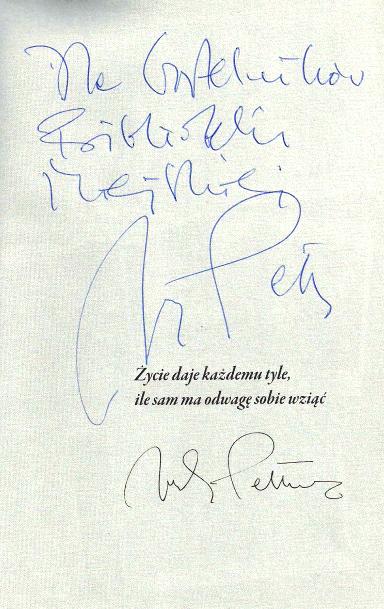 Dla Czytelników
Biblioteki
Miejskiej
Życie daje każdemu tyle,
ile sam ma odwagę sobie wziąć